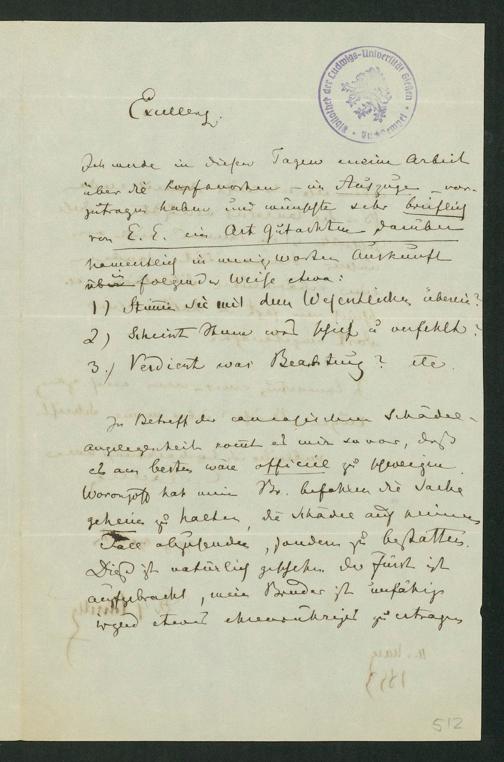 Bibliothek der Ludwigs-Universität Giessen
Excellenz.
Ich werde in diesen Tagen meine Arbeit
über die Kopfknochen – im Auszuge – vor-
zutragen haben und wünschte sehr brieflich
von E. E. ein Art Gutachten darüber
namentlich in wenig Worten Auskunft
folgender Weise etwa:
1) Stimmen Sie mit dem Wesentlichen überein?
2) Scheint Ihnen was schief u verfehlt?
3.) Verdient was Beachtung? etc.
In Betreff der Schädel-
angelegenheit kommt es mir so vor, daß
es am besten wäre officiel zu schweigen.
Woronzoff hat mein Br. befohlen die Sache
geheim zu halten, die Schädel auf keinen
Fall abzusenden, sondern zu bestatten.
Dieß ist natürlich geschehen der Fürst ist
aufgebracht, mein Bruder ist unfähig
irgend etwas ehrenrühriges zu ertragen
512